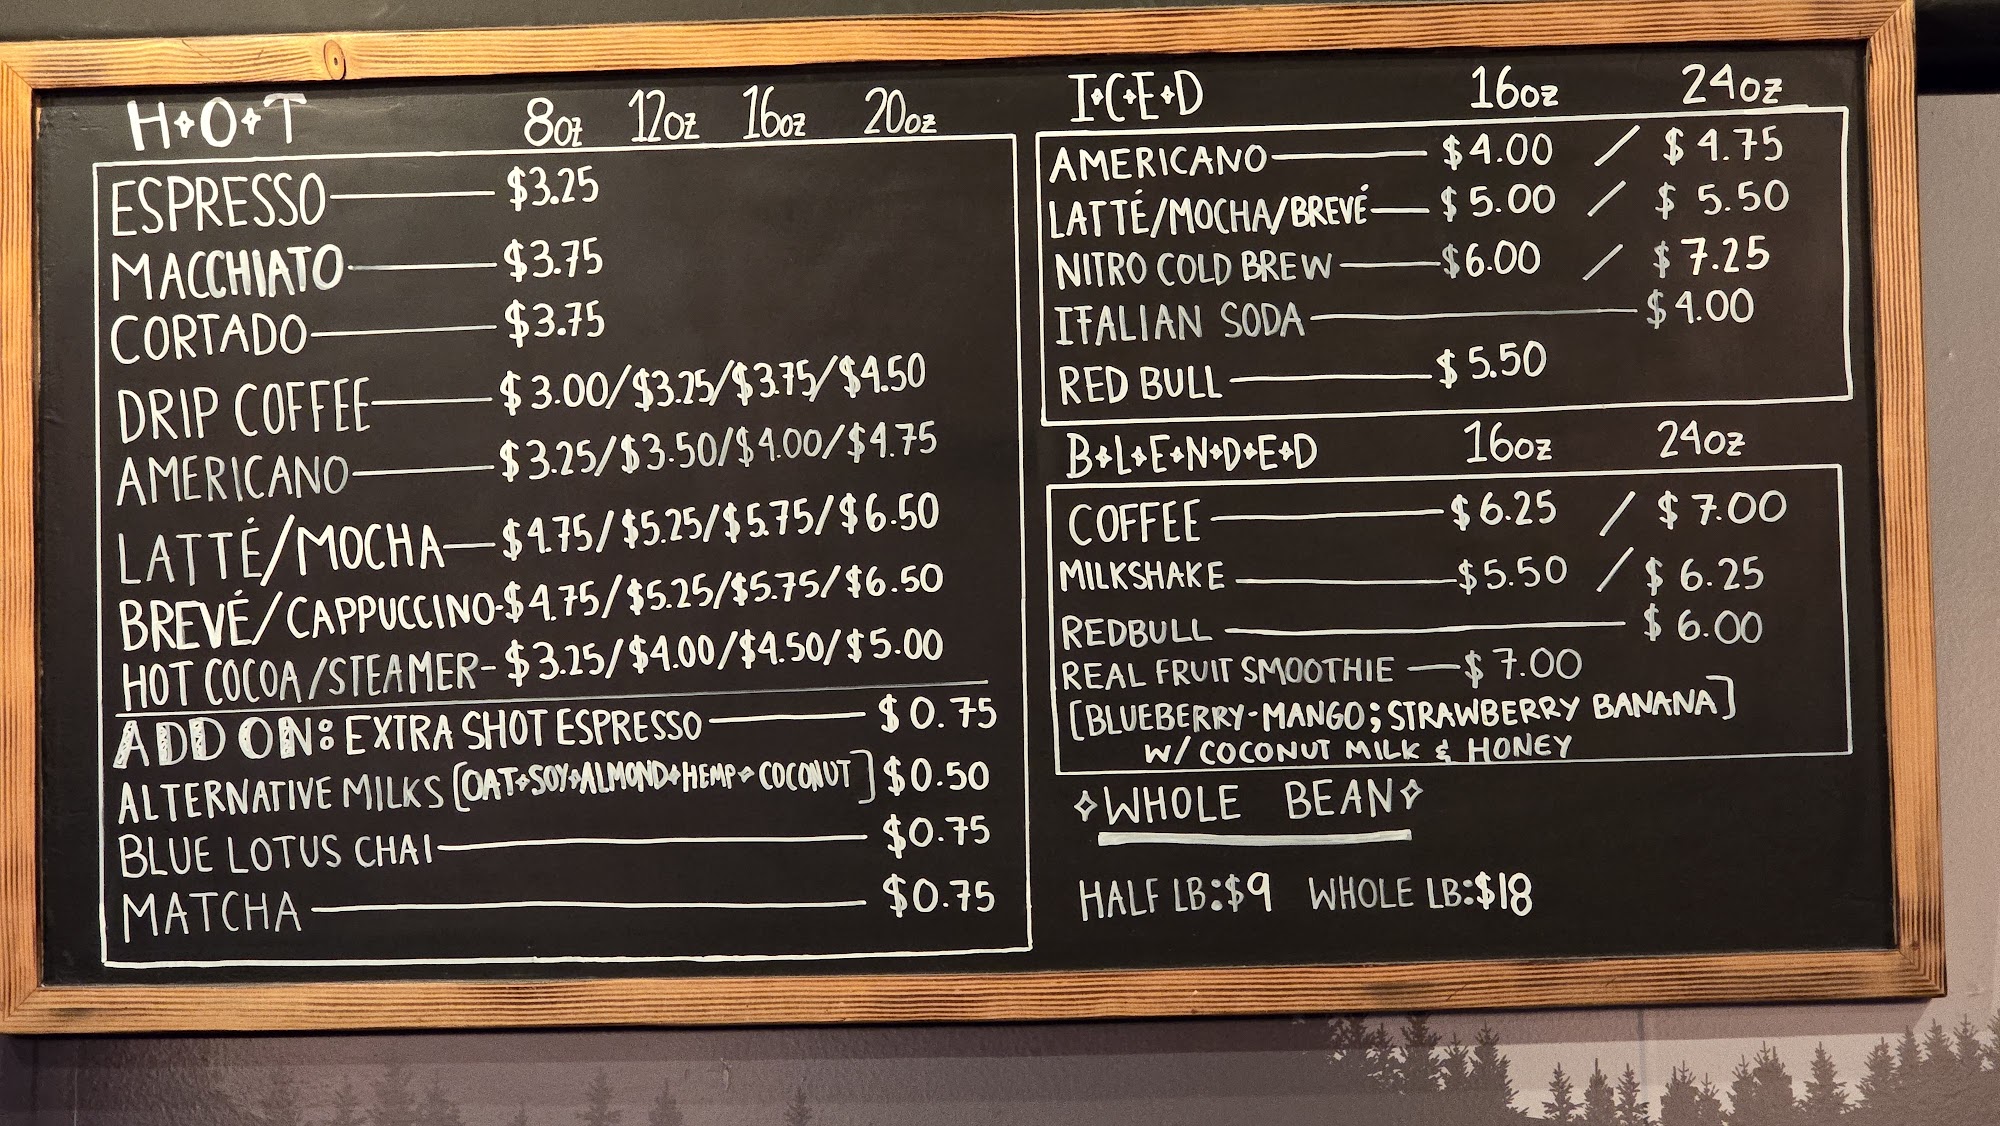 HOT 8oz 12oz 16oz 20oz
ESPRESSO $3.25
MACCHIATO $3.75
CORTADO $3.75
DRIP COFFEE $3.00/$3.25/$3.75/$4.50
AMERICANO $3.25/$3.50/$4.00/$4.75
LATTÉ/MOCHA $4.75/$5.25/$5.75/$6.50
BREVÉ/CAPPUCCINO-$4.75/$5.25/$5.75/$6.50
HOT COCOA/STEAMER-$3.25/$4.00/$4.50/$5.00
ADD ON: EXTRA SHOT ESPRESSO $0.75
ALTERNATIVE MILKS [OAT+SOY+ALMOND+HEMP+COCONUT] $0.50
BLUE LOTUS CHAI $0.75
MATCHA $0.75
ICED 16oz 24oz
AMERICANO $4.00 / $4.75
LATTÉ/MOCHA/BREVÉ $5.00 / $5.50
NITRO COLD BREW $6.00 / $7.25
ITALIAN SODA $4.00
RED BULL $5.50
BLENDED 16oz 24oz
COFFEE $6.25 / $7.00
MILKSHAKE $5.50 / $6.25
REDBULL $6.00
REAL FRUIT SMOOTHIE $7.00
[BLUEBERRY-MANGO; STRAWBERRY BANANA]
W/ COCONUT MILK & HONEY
WHOLE BEAN
HALF LB:$9 WHOLE LB:$18